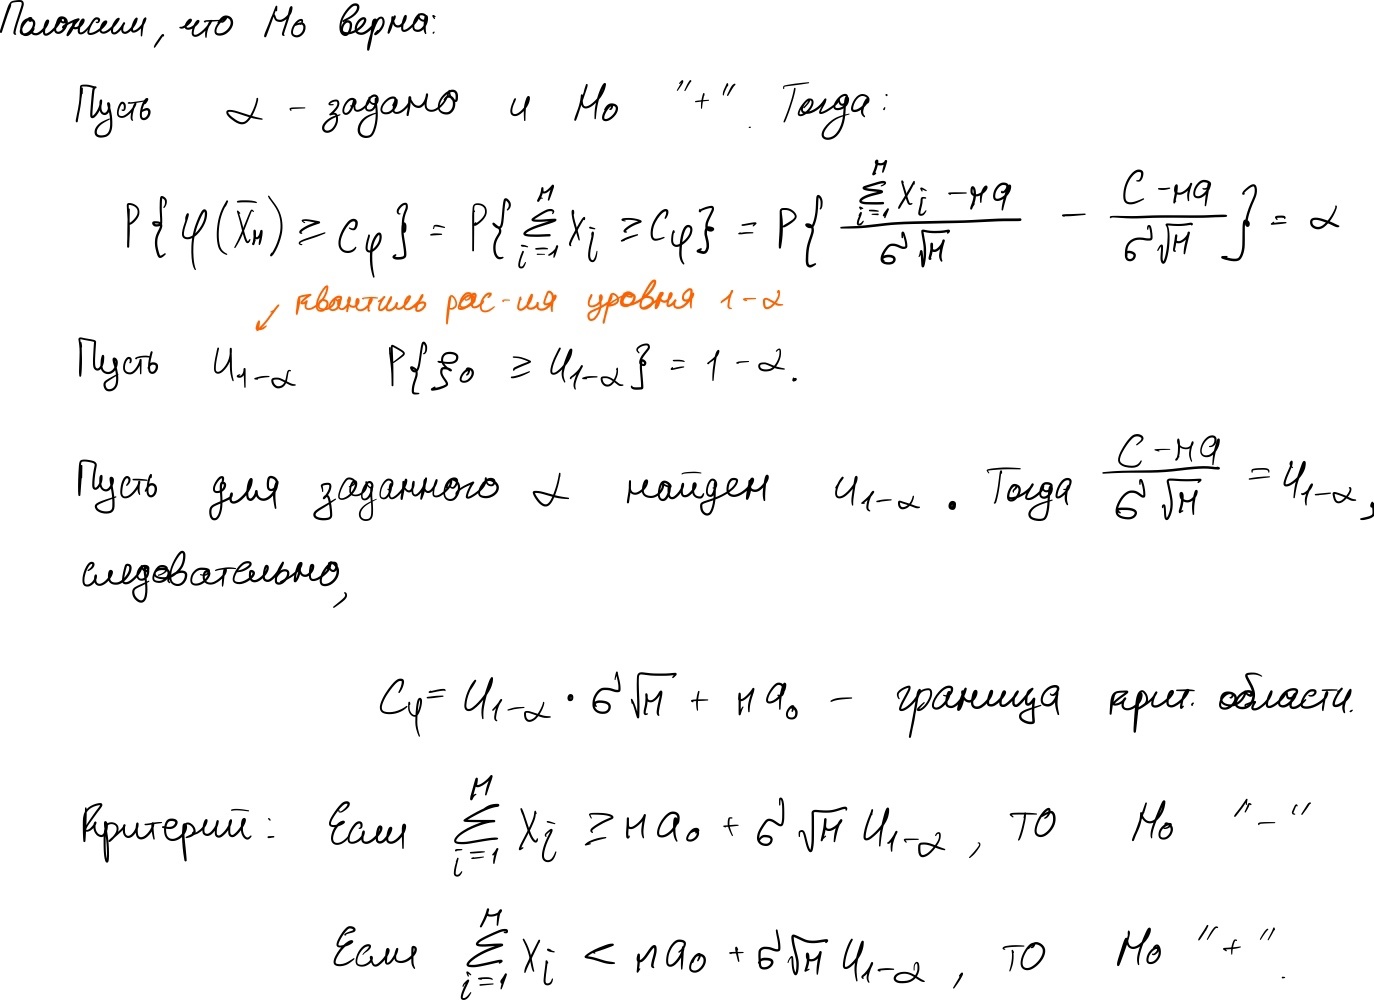 Положим, что H₀ верна:
Пусть α – задано и H₀ "+". Тогда:
P{φ(X̄ₙ) ≥ C_φ} = P{∑_{i=1}^{n} X_i ≥ C_φ} = P{(∑_{i=1}^{n} X_i – na)/(σ√n) – (C – na)/(σ√n)} = α
квантиль рас-ия уровня 1-α
Пусть U_{1-α} P{ξ₀ ≥ U_{1-α}} = 1 - α.
Пусть для заданного α найден U_{1-α}. Тогда (C – na)/(σ√n) = U_{1-α},
следовательно,
C_φ = U_{1-α} · σ√n + na₀ – граница крит. области.
Критерий: Если ∑_{i=1}^{n} X_i ≥ na₀ + σ√n U_{1-α}, то H₀ "–"
Если ∑_{i=1}^{n} X_i < na₀ + σ√n U_{1-α}, то H₀ "+".